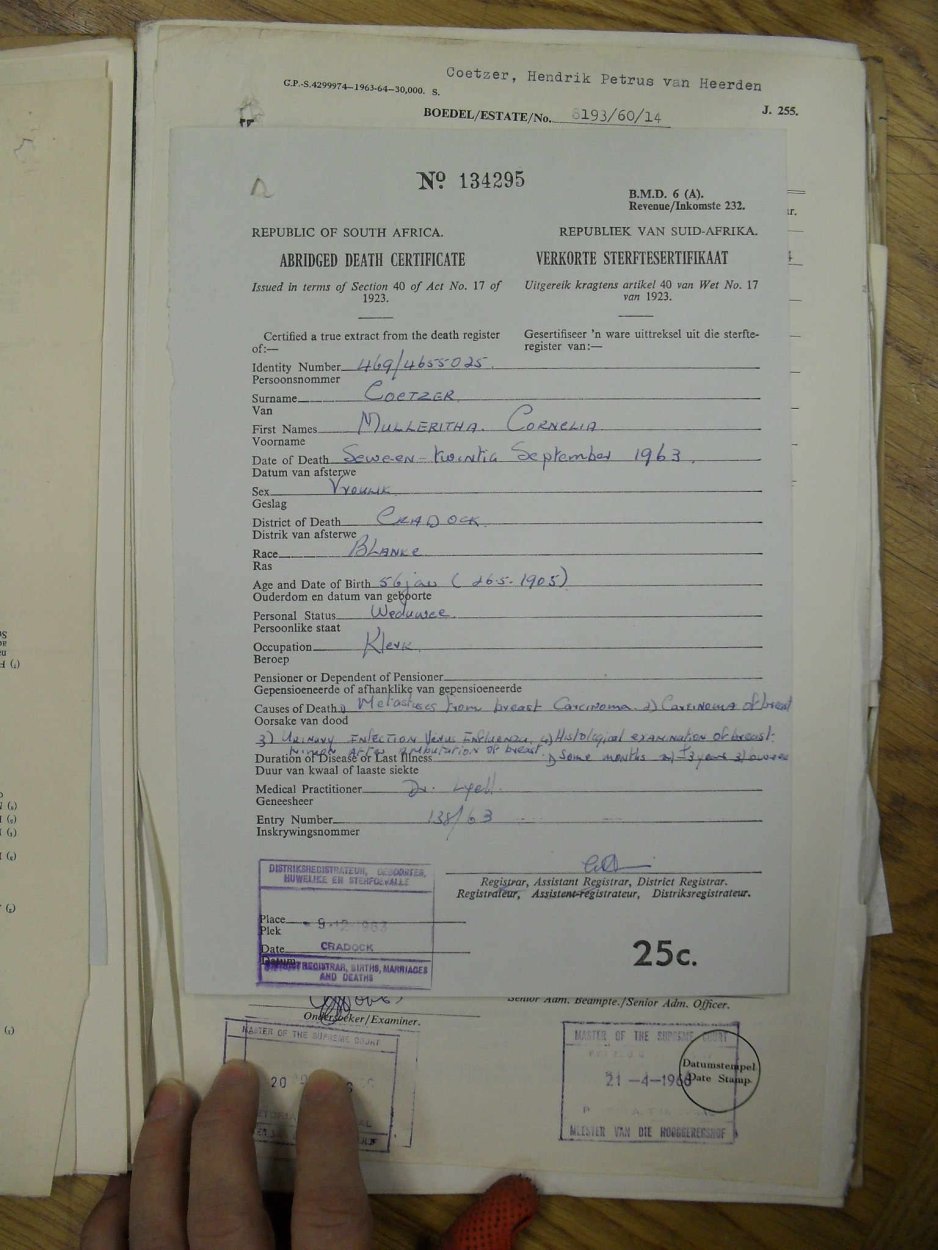 Coetzer, Hendrik Petrus van Heerden
G.P.-S.4299974—1963-64—30,000. S.
J. 255.
BOEDEL/ESTATE/No. 6193/60/14
No 134295
B.M.D. 6 (A).
Revenue/Inkomste 232.
REPUBLIC OF SOUTH AFRICA. REPUBLIEK VAN SUID-AFRIKA.
ABRIDGED DEATH CERTIFICATE VERKORTE STERFTESERTIFIKAAT
Issued in terms of Section 40 of Act No. 17 of 1923.
Uitgereik kragtens artikel 40 van Wet No. 17 van 1923.
Certified a true extract from the death register of:—
Gesertifiseer 'n ware uittreksel uit die sterfte-register van:—
Identity Number 469/4655025.
Persoonsnommer
Surname COETZER
Van
First Names MULLERITHA. CORNELIA
Voorname
Date of Death Seween-twintig September 1963.
Datum van afsterwe
Sex Vroulik
Geslag
District of Death CRADOCK.
Distrik van afsterwe
Race BLANKE
Ras
Age and Date of Birth 56 jaar (26-5-1905)
Ouderdom en datum van geboorte
Personal Status Weduwee
Persoonlike staat
Occupation Klerk
Beroep
Pensioner or Dependent of Pensioner
Gepensioeneerde of afhanklike van gepensioeneerde
Causes of Death 1) Metastises from breast Carcinoma 2) Carcinoma of breast
Oorsake van dood
3) URINARY INFECTION Virus Influenza 4) Histological examination of breast
after amputation of breast.
Duration of Disease or Last Illness 1) Some months 2) ±3 years 3)
Duur van kwaal of laaste siekte
Medical Practitioner Dr. Lyell
Geneesheer
Entry Number 138/63
Inskrywingsnommer
DISTRIKSREGISTRATEUR, GEBOORTES,
HUWELIKE EN STERFGEVALLE
Registrar, Assistant Registrar, District Registrar.
Registrateur, Assistent-registrateur, Distriksregistrateur.
Place
Plek
-9-12-1963
Date
Datum
CRADOCK
DISTRICT REGISTRAR, BIRTHS, MARRIAGES
AND DEATHS
25c.
Senior Adm. Beampte./Senior Adm. Officer.
Ondersoeker/Examiner.
MASTER OF THE SUPREME COURT
20
MASTER OF THE SUPREME COURT
21 -4-1966
MEESTER VAN DIE HOOGGEREGSHOF
Datumstempel
Date Stamp.